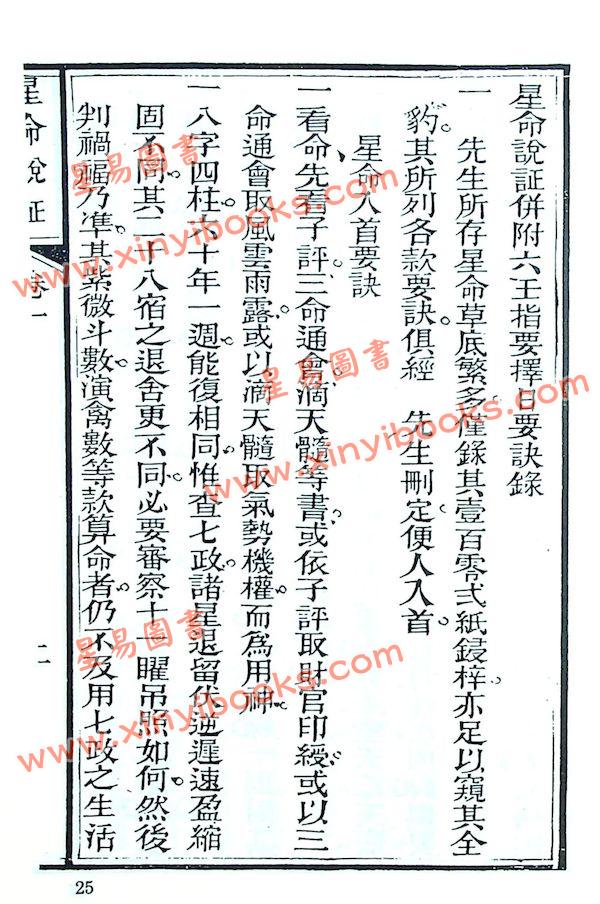 星命說証併附六壬指要擇日要訣錄
一　先生所存星命草底繁多僅錄其壹百零弍紙鋟样亦足以窺其全
豹。其所列各款要訣俱經　先生刪定便人入首
星命入首要訣
一看命先看子評。三命通會。滴天髓等書。或依子評取財官印綬。或以三
命通會取風雲雨露。或以滴天髓取氣勢機權。而爲用神。
一八字四柱六十年一週。能復相同。惟查七政諸星。退留伏逆遲速盈縮
固不同。其二十八宿之退舍更不同。必要審察十一曜吊照如何。然後
判禍福乃準。其紫微斗數。演禽數等款。算命者。仍不及用七政之生活
星命說証
卷一
二
25
星易圖書
www.xinyibooks.com
星易圖書
www.xinyibooks.com
星易圖書
www.xinyibooks.com
星易圖書
www.xinyibooks.com